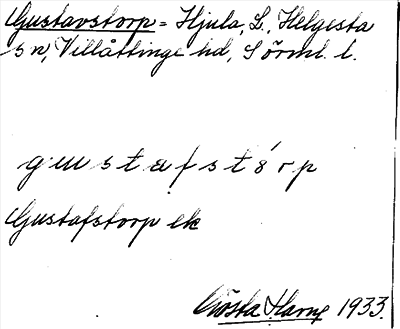 Gustavstorp = Hjula, L., Helgesta
sn, Villåttinge hd, Sörml. l.
gustafstórp
Gustafstorp ek
Gösta Harne 1933.